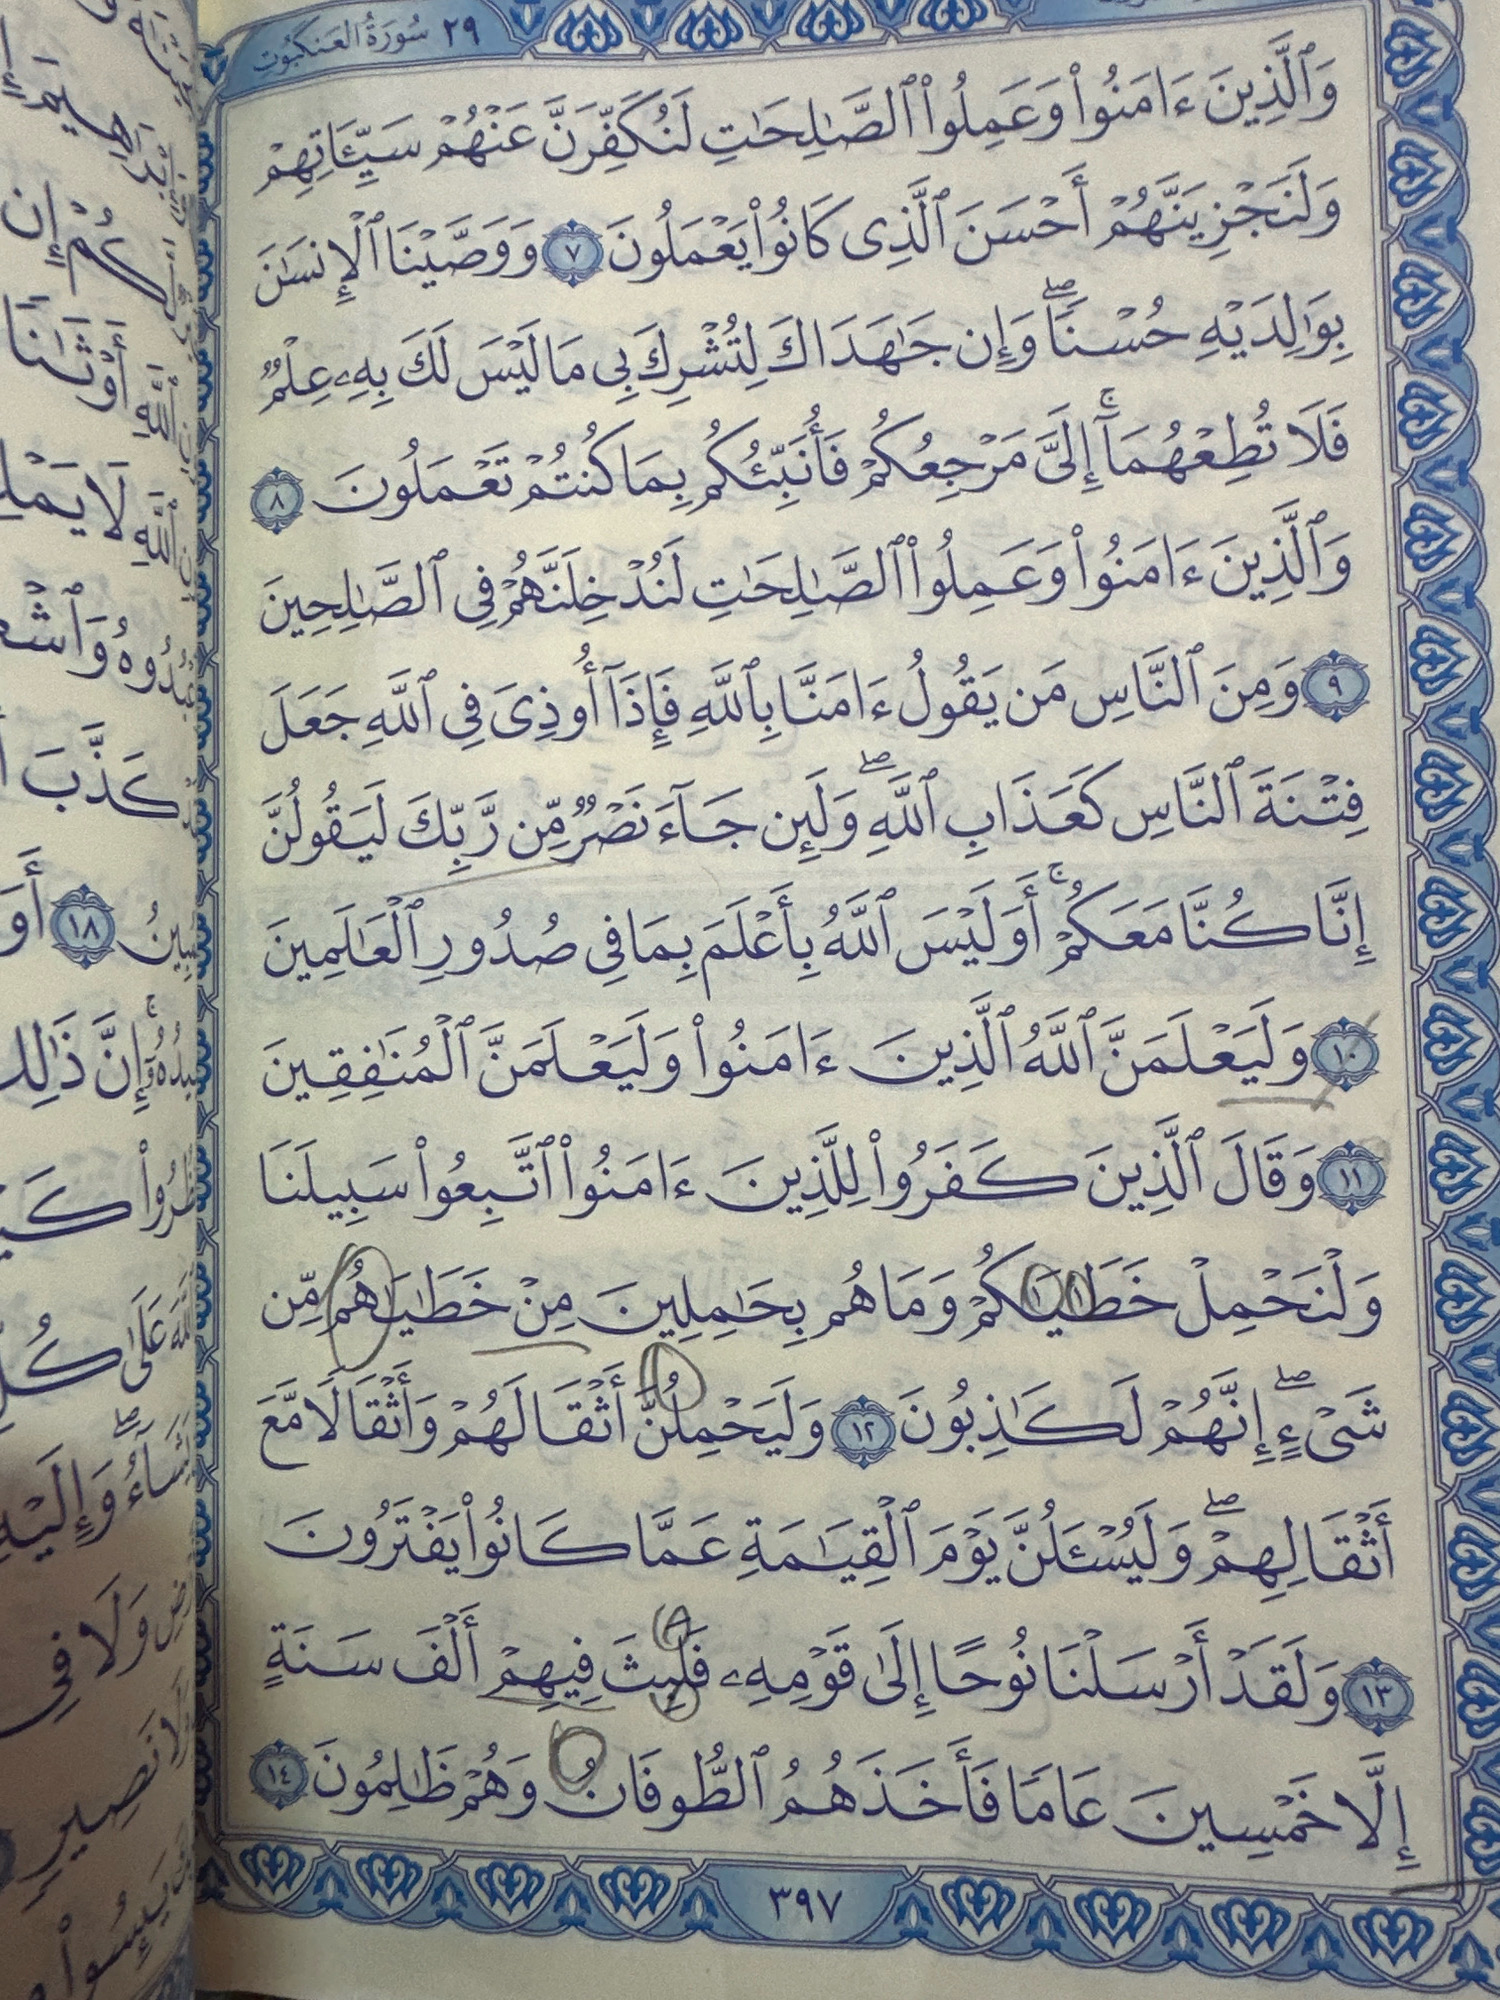 ٢٩ سُورَةُ العَنكَبُوتِ
وَٱلَّذِينَ ءَامَنُوا۟ وَعَمِلُوا۟ ٱلصَّـٰلِحَـٰتِ لَنُكَفِّرَنَّ عَنْهُمْ سَيِّـَٔاتِهِمْ
وَلَنَجْزِيَنَّهُمْ أَحْسَنَ ٱلَّذِى كَانُوا۟ يَعْمَلُونَ ٧ وَوَصَّيْنَا ٱلْإِنسَـٰنَ
بِوَٰلِدَيْهِ حُسْنًا ۖ وَإِن جَـٰهَدَاكَ لِتُشْرِكَ بِى مَا لَيْسَ لَكَ بِهِۦ عِلْمٌ
فَلَا تُطِعْهُمَآ ۚ إِلَىَّ مَرْجِعُكُمْ فَأُنَبِّئُكُم بِمَا كُنتُمْ تَعْمَلُونَ ٨
وَٱلَّذِينَ ءَامَنُوا۟ وَعَمِلُوا۟ ٱلصَّـٰلِحَـٰتِ لَنُدْخِلَنَّهُمْ فِى ٱلصَّـٰلِحِينَ
٩ وَمِنَ ٱلنَّاسِ مَن يَقُولُ ءَامَنَّا بِٱللَّهِ فَإِذَآ أُوذِىَ فِى ٱللَّهِ جَعَلَ
فِتْنَةَ ٱلنَّاسِ كَعَذَابِ ٱللَّهِ ۖ وَلَئِن جَآءَ نَصْرٌ مِّن رَّبِّكَ لَيَقُولُنَّ
إِنَّا كُنَّا مَعَكُمْ ۚ أَوَلَيْسَ ٱللَّهُ بِأَعْلَمَ بِمَا فِى صُدُورِ ٱلْعَـٰلَمِينَ
١٠ وَلَيَعْلَمَنَّ ٱللَّهُ ٱلَّذِينَ ءَامَنُوا۟ وَلَيَعْلَمَنَّ ٱلْمُنَـٰفِقِينَ
١١ وَقَالَ ٱلَّذِينَ كَفَرُوا۟ لِلَّذِينَ ءَامَنُوا۟ ٱتَّبِعُوا۟ سَبِيلَنَا
وَلْنَحْمِلْ خَطَـٰيَـٰكُمْ وَمَا هُم بِحَـٰمِلِينَ مِنْ خَطَـٰيَـٰهُم مِّن
شَىْءٍ ۖ إِنَّهُمْ لَكَـٰذِبُونَ ١٢ وَلَيَحْمِلُنَّ أَثْقَالَهُمْ وَأَثْقَالًا مَّعَ
أَثْقَالِهِمْ ۖ وَلَيُسْـَٔلُنَّ يَوْمَ ٱلْقِيَـٰمَةِ عَمَّا كَانُوا۟ يَفْتَرُونَ
١٣ وَلَقَدْ أَرْسَلْنَا نُوحًا إِلَىٰ قَوْمِهِۦ فَلَبِثَ فِيهِمْ أَلْفَ سَنَةٍ
إِلَّا خَمْسِينَ عَامًا فَأَخَذَهُمُ ٱلطُّوفَانُ وَهُمْ ظَـٰلِمُونَ ١٤
٣٩٧
إِن
أَوْثَـٰنًا
ٱللَّهِ
ٱللَّهِ لَا
كَذَّبَ
١٨
إِنَّ
عَلَىٰ
وَإِلَيْهِ
وَلَا فِى
نَصِيرٍ